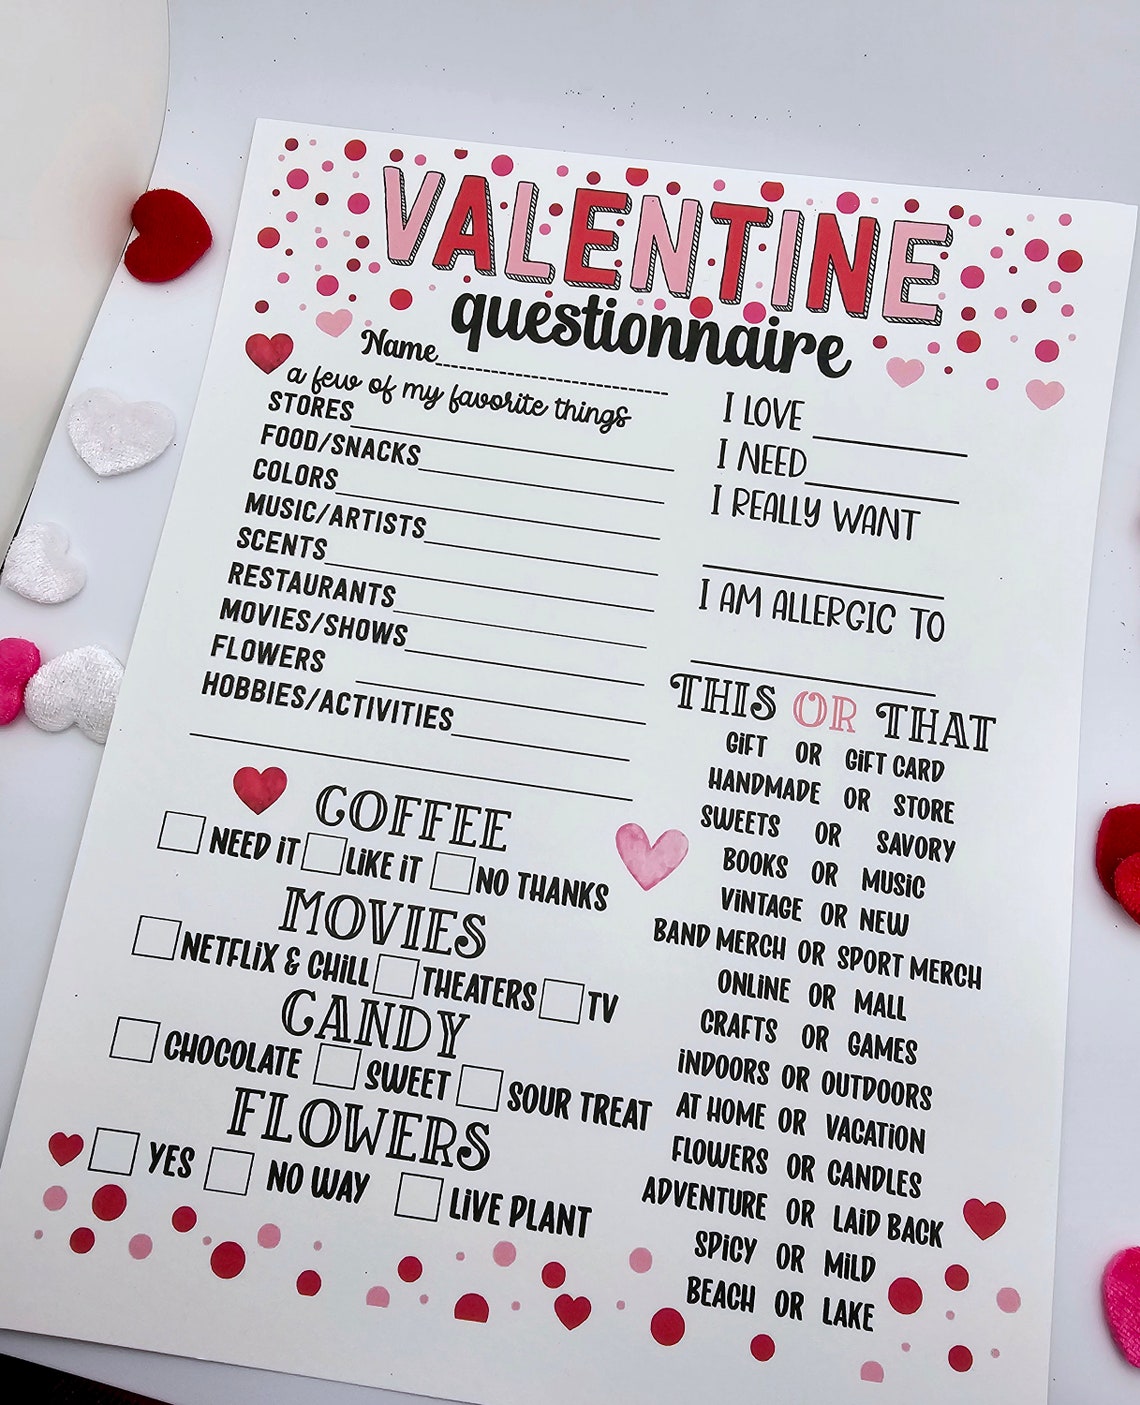 VALENTINE
questionnaire
Name
a few of my favorite things
STORES
FOOD/SNACKS
COLORS
MUSIC/ARTISTS
SCENTS
RESTAURANTS
MOVIES/SHOWS
FLOWERS
HOBBIES/ACTIVITIES
COFFEE
NEED IT LIKE IT NO THANKS
MOVIES
NETFLIX & CHILL THEATERS TV
CANDY
CHOCOLATE SWEET SOUR TREAT
FLOWERS
YES NO WAY LIVE PLANT
I LOVE
I NEED
I REALLY WANT
I AM ALLERGIC TO
THIS OR THAT
GIFT OR GIFT CARD
HANDMADE OR STORE
SWEETS OR SAVORY
BOOKS OR MUSIC
VINTAGE OR NEW
BAND MERCH OR SPORT MERCH
ONLINE OR MALL
CRAFTS OR GAMES
INDOORS OR OUTDOORS
AT HOME OR VACATION
FLOWERS OR CANDLES
ADVENTURE OR LAID BACK
SPICY OR MILD
BEACH OR LAKE